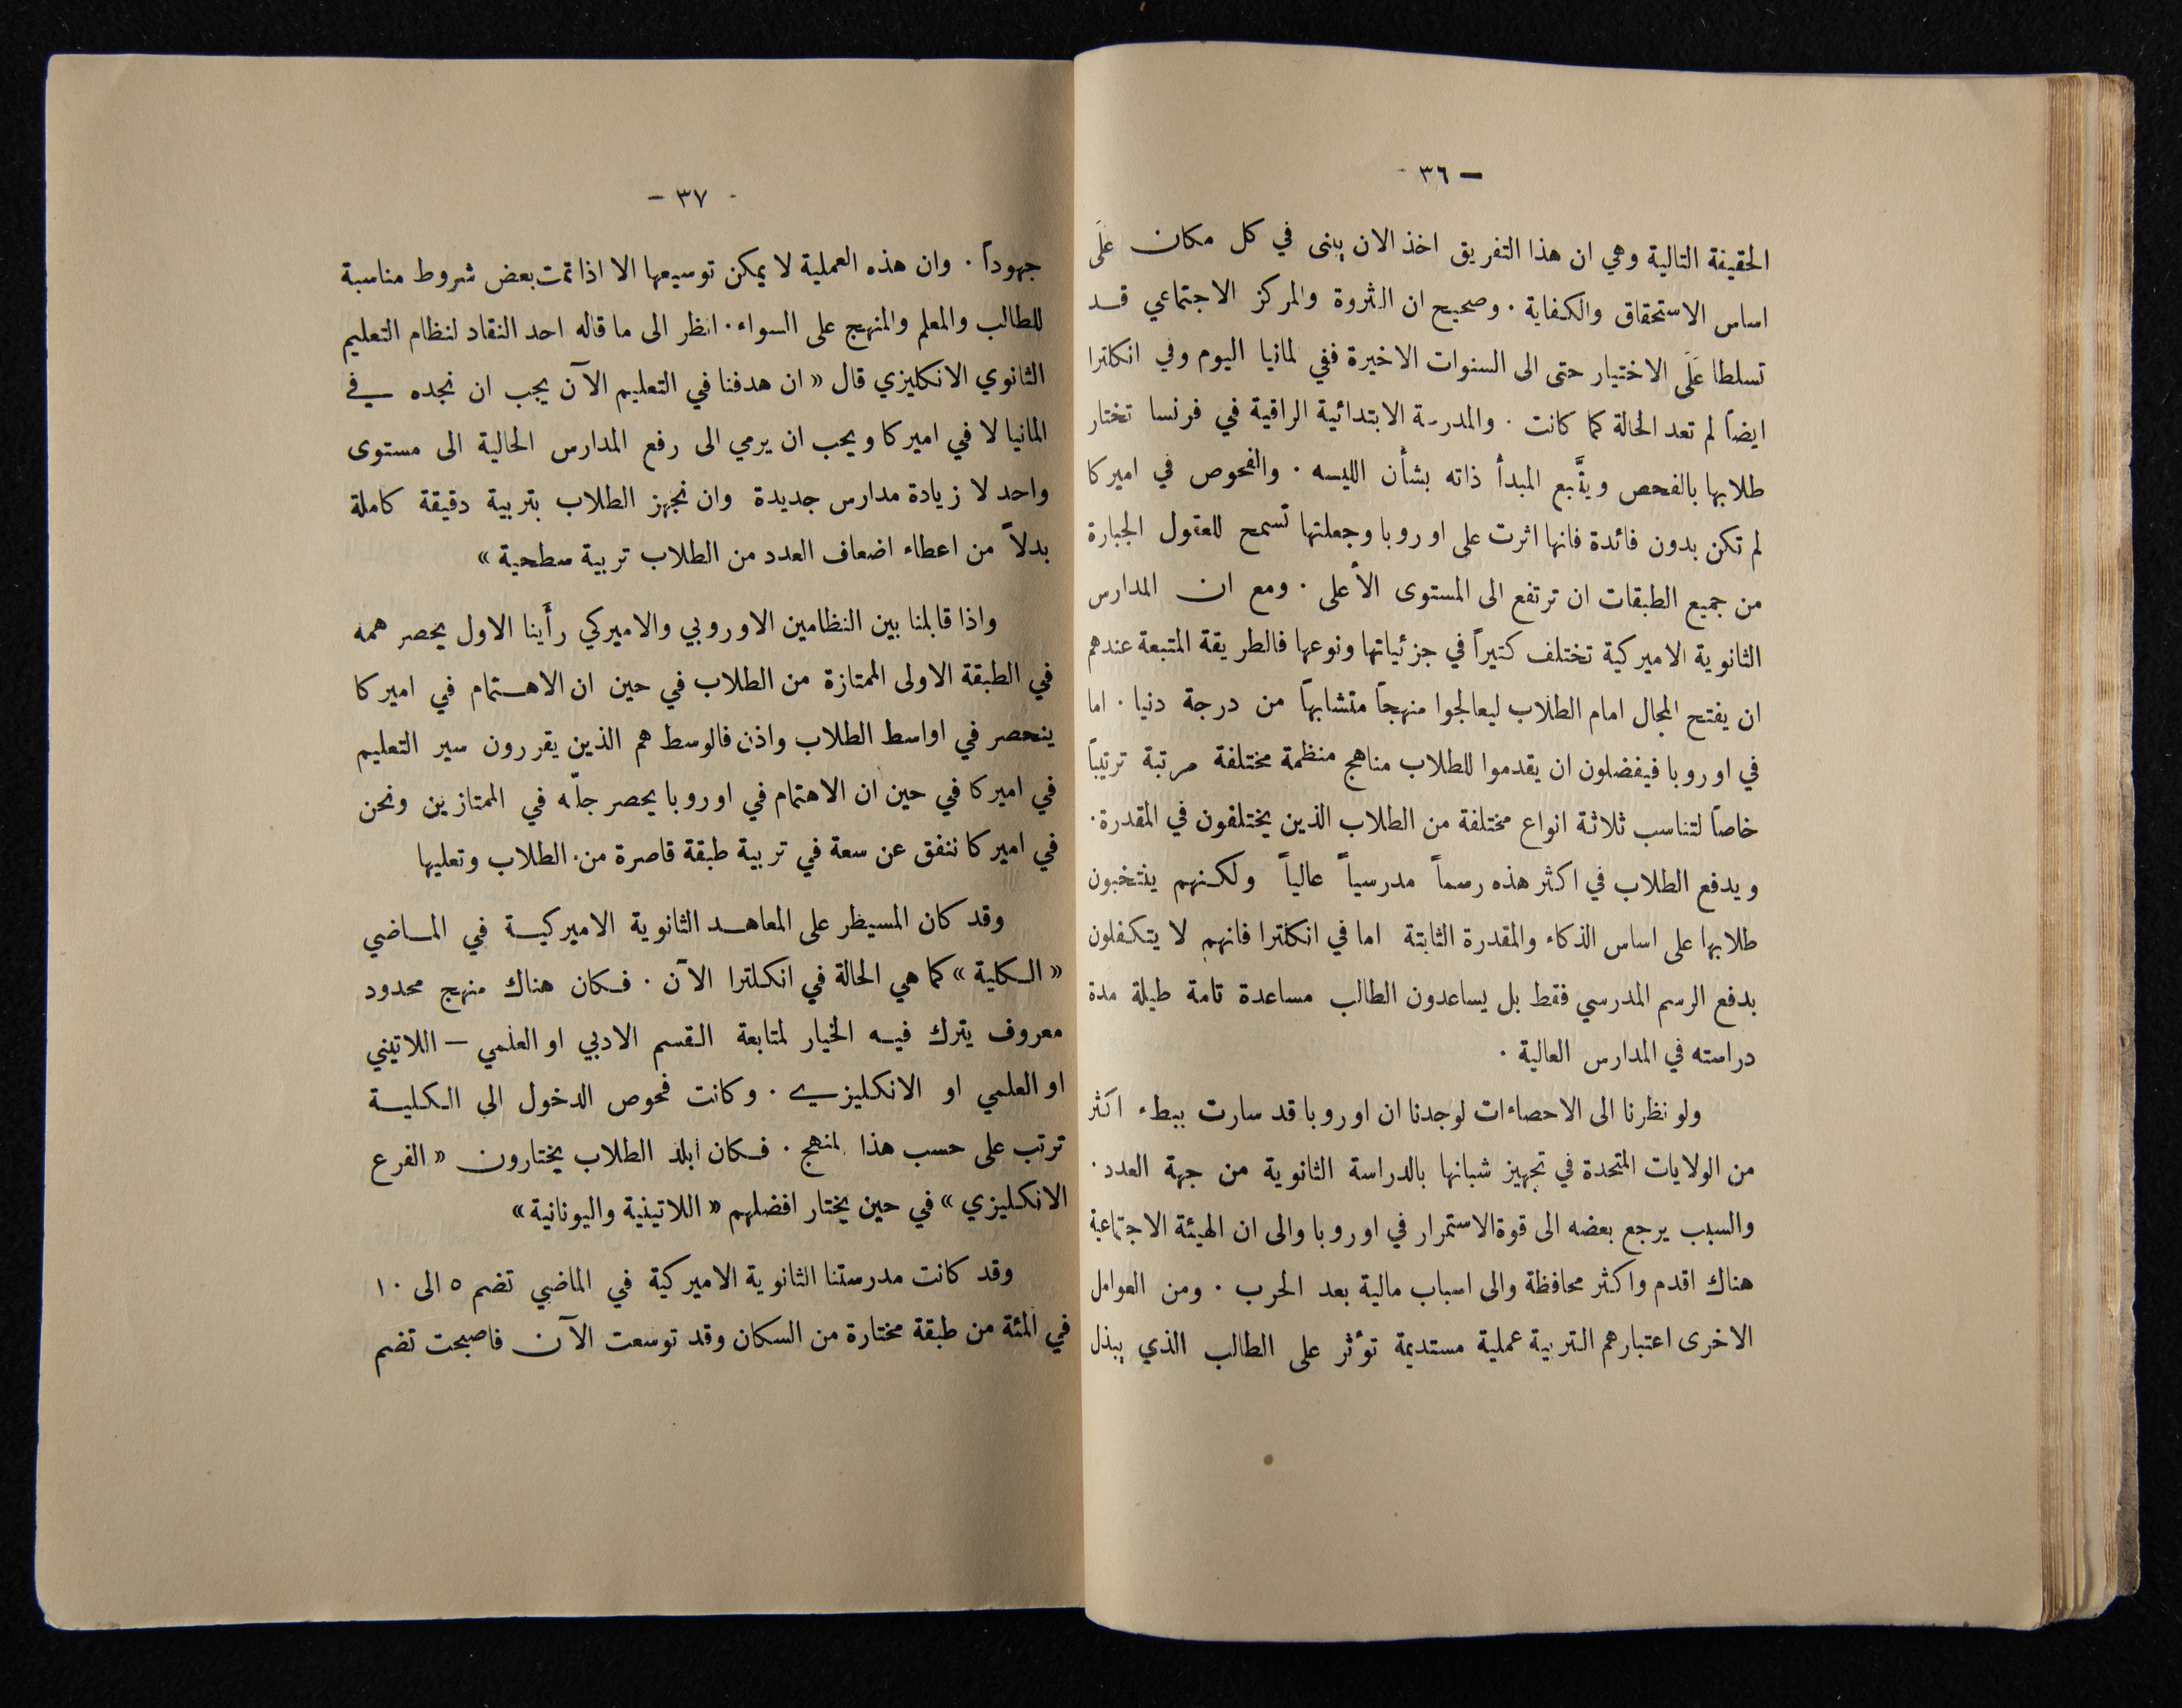 — ٣٦ -
الحقيقة التالية وهي ان هذا التفريق اخذ الان يبنى في كل مكان عَلَى
اساس الاستحقاق والكفاية . وصحيح ان الثروة والمركز الاجتماعي قد
تسلطا عَلَى الاختيار حتى الى السنوات الاخيرة ففي لمانيا اليوم وفي انكلترا
ايضاً لم تعد الحالة كما كانت . والمدرسة الابتدائية الراقية في فرنسا تختار
طلابها بالفحص ويتَّبع المبدأ ذاته بشأن الليسه . والفحوص في اميركا
لم تكن بدون فائدة فانها اثرت على اوروبا وجعلتها تسمح للعقول الجبارة
من جميع الطبقات ان ترتفع الى المستوى الأعلى . ومع ان المدارس
الثانوية الاميركية تختلف كثيراً في جزئياتها ونوعها فالطريقة المتبعة عندهم
ان يفتح المجال امام الطلاب ليعالجوا منهجاً متشابهاً من درجة دنيا . اما
في اوروبا فيفضلون ان يقدموا للطلاب مناهج منظمة مختلفة مرتبة ترتيباً
خاصاً لتناسب ثلاثة انواع مختلفة من الطلاب الذين يختلفون في المقدرة .
ويدفع الطلاب في اكثر هذه رسماً مدرسياً عالياً ولكنهم ينتخبون
طلابها على اساس الذكاء والمقدرة الثابتة اما في انكلترا فانهم لا يتكفلون
بدفع الرسم المدرسي فقط بل يساعدون الطالب مساعدة تامة طيلة مدة
دراسته في المدارس العالية .
ولو نظرنا الى الاحصاءات لوجدنا ان اوروبا قد سارت ببطء اكثر
من الولايات المتحدة في تجهيز شبانها بالدراسة الثانوية من جهة العدد .
والسبب يرجع بعضه الى قوة الاستمرار في اوروبا والى ان الهيئة الاجتماعية
هناك اقدم واكثر محافظة والى اسباب مالية بعد الحرب . ومن العوامل
الاخرى اعتبارهم التربية عملية مستديمة تؤثر على الطالب الذي يبذل
- ٣٧ -
جهوداً . وان هذه العملية لا يمكن توسيعها الا اذا تمت بعض شروط مناسبة
للطالب والمعلم والمنهج على السواء . انظر الى ما قاله احد النقاد لنظام التعليم
الثانوي الانكليزي قال « ان هدفنا في التعليم الآن يجب ان نجده في
المانيا لا في اميركا ويجب ان يرمي الى رفع المدارس الحالية الى مستوى
واحد لا زيادة مدارس جديدة وان نجهز الطلاب بتربية دقيقة كاملة
بدلاً من اعطاء اضعاف العدد من الطلاب تربية سطحية »
واذا قابلنا بين النظامين الاوروبي والاميركي رأَينا الاول يحصر همه
في الطبقة الاولى الممتازة من الطلاب في حين ان الاهتمام في اميركا
ينحصر في اواسط الطلاب واذن فالوسط هم الذين يقررون سير التعليم
في اميركا في حين ان الاهتمام في اوروبا يحصر جلّه في الممتازين ونحن
في اميركا ننفق عن سعة في تربية طبقة قاصرة من الطلاب وتعليها
وقد كان المسيطر على المعاهد الثانوية الاميركية في الماضي
« الكلية » كما هي الحالة في انكلترا الآن . فكان هناك منهج محدود
معروف يترك فيه الخيار لمتابعة القسم الادبي او العلمي — اللاتيني
او العلمي او الانكليزي . وكانت فحوص الدخول الى الكلية
ترتب على حسب هذا لمنهج . فكان أبلد الطلاب يختارون « الفرع
الانكليزي » في حين يختار افضلهم « اللاتينية واليونانية »
وقد كانت مدرستنا الثانوية الاميركية في الماضي تضم ٥ الى ١٠
في المئة من طبقة مختارة من السكان وقد توسعت الآن فاصبحت تضم